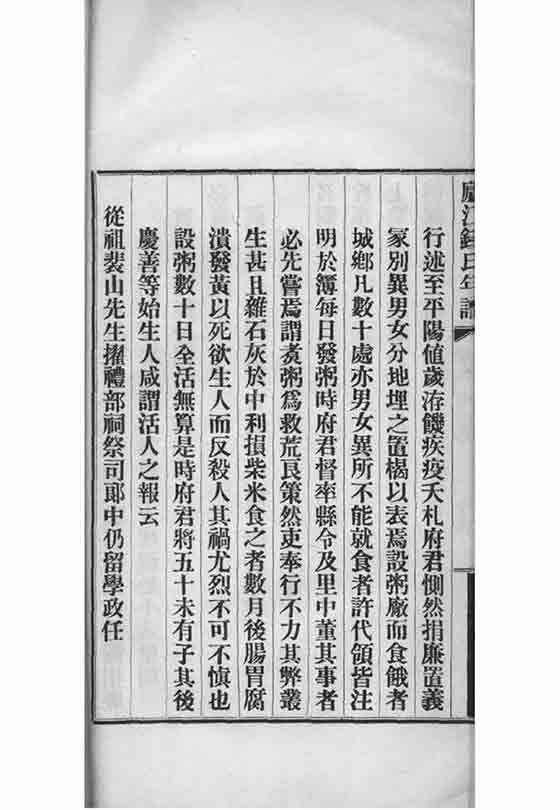 廬江錢氏年譜
行述至平陽值歲洊饑疾疫夭札府君惻然捐廉置義
冢別異男女分地埋之置楬以表焉設粥廠而食餓者
城鄉凡數十處亦男女異所不能就食者許代領皆注
明於簿每日發粥時府君督率縣令及里中董其事者
必先嘗焉謂煮粥爲救荒良策然吏奉行不力其弊叢
生甚且雜石灰於中利損柴米食之者數月後腸胃腐
潰發黃以死欲生人而反殺人其禍尤烈不可不愼也
設粥數十日全活無算是時府君將五十未有子其後
慶善等始生人咸謂活人之報云
從祖裴山先生擢禮部祠祭司郎中仍留學政任